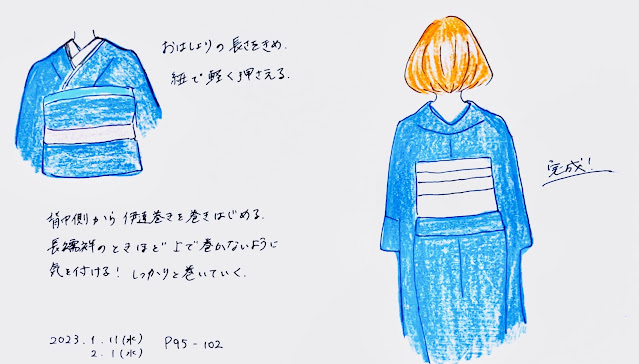 おはしょりの長さをきめ、
紐で軽く押さえる.
背中側から伊達巻きを巻きはじめる.
長襦袢のときほど上で巻かないように
気を付ける! しっかりと巻いていく.
2023.1.11(水) P95-102
2.1(水)
完成!